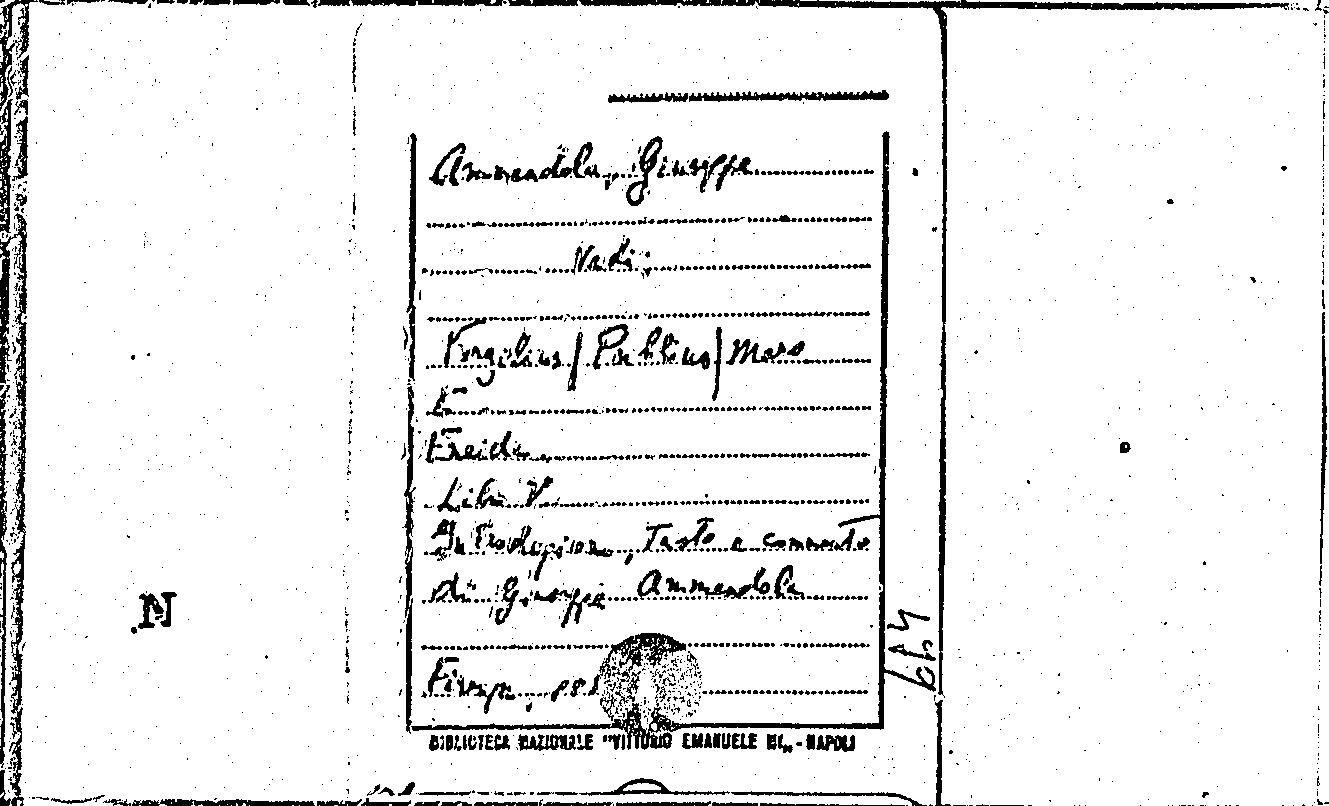 Ammendola, Giuseppe
Vedi:
Vergilius / Publius / Maro
E
Eneide.
Libro V
Introduzione, Testo e commento
di Giuseppe Ammendola
Firenze,
BIBLIOTECA NAZIONALE "VITTORIO EMANUELE III„ - NAPOLI
N.